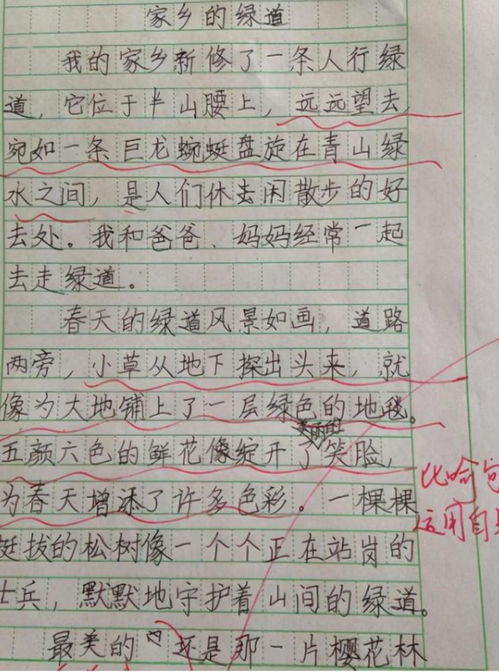 家乡的绿道
我的家乡新修了一条人行绿
道，它位于半山腰上，远远望去，
宛如一条巨龙蜿蜒盘旋在青山绿
水之间，是人们休去闲散步的好
去处。我和爸爸、妈妈经常一起
去走绿道。
春天的绿道风景如画，道路
两旁，小草从地下探出头来，就
像为大地铺上了一层绿色的地毯。
美丽的
五颜六色的鲜花像绽开了笑脸，
为春天增添了许多色彩。一棵棵
比喻句
挺拔的松树像一个个正在站岗的
运用自
士兵，默默地守护着山间的绿道。
最美的还是那一片樱花林